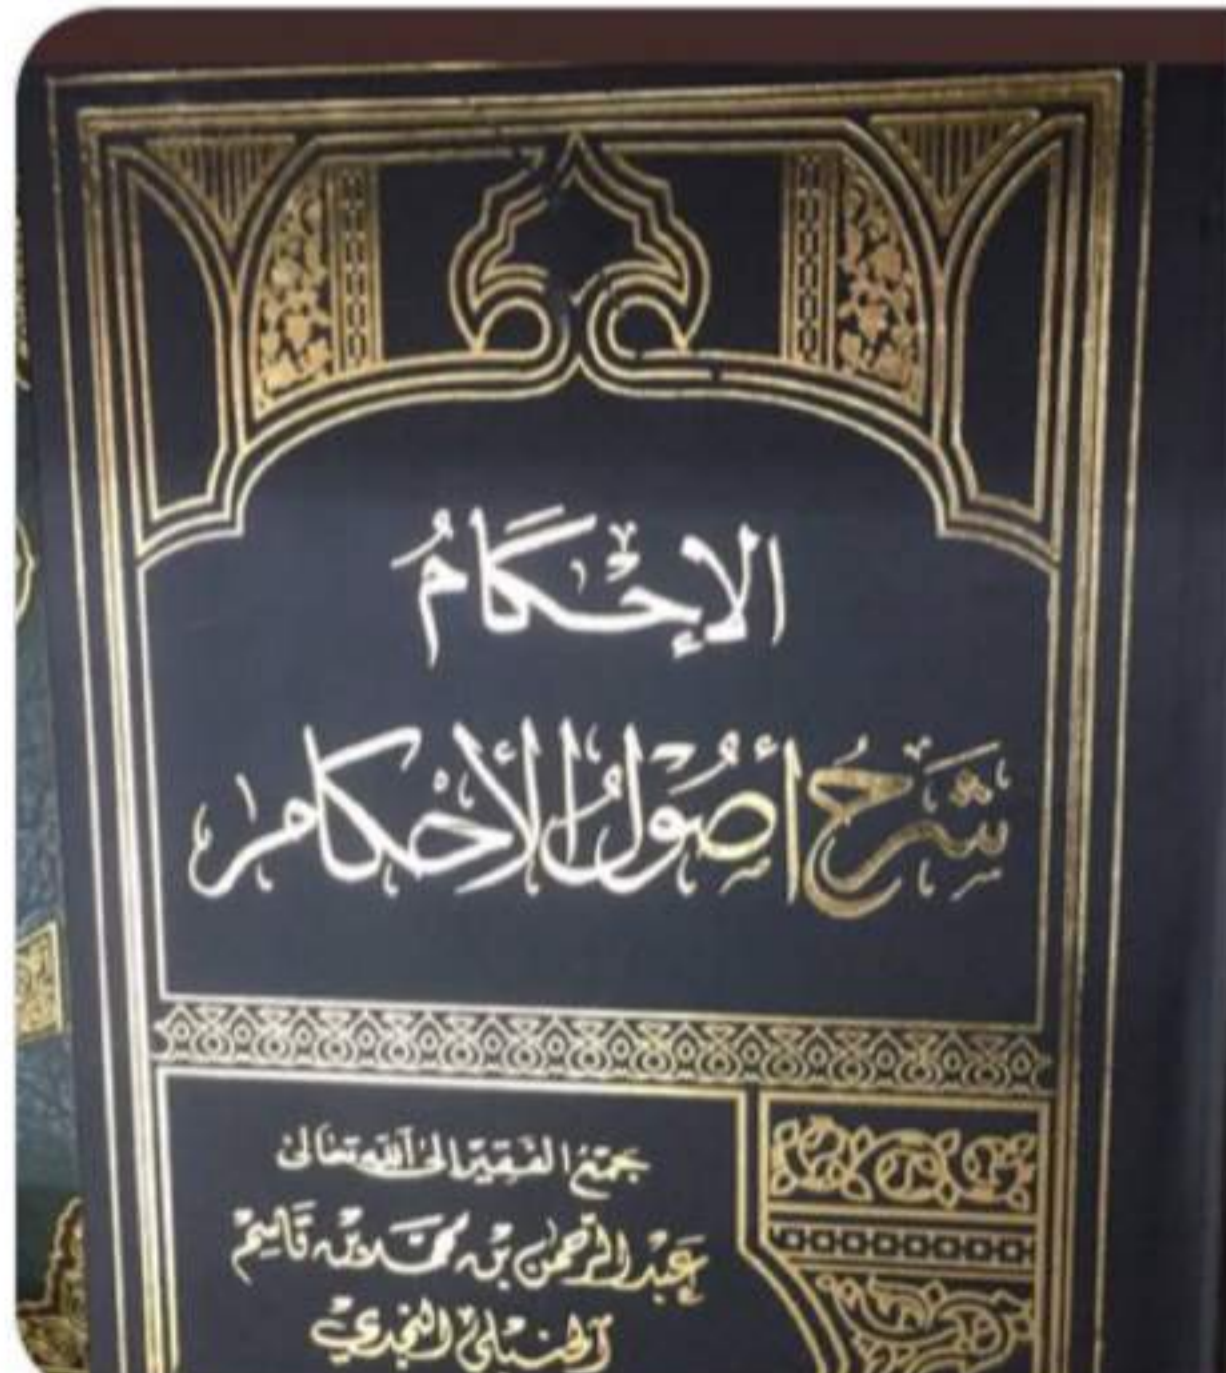 الإحْكَامُ
شَرْحُ أُصُولِ الأَحْكَامِ
جَمْعُ الفَقِيْرِ إلى اللهِ تعَالى
عَبْد الرَّحمٰن بْن مُحَمَّد بْن قَاسِمْ
الحنبلي النجدي